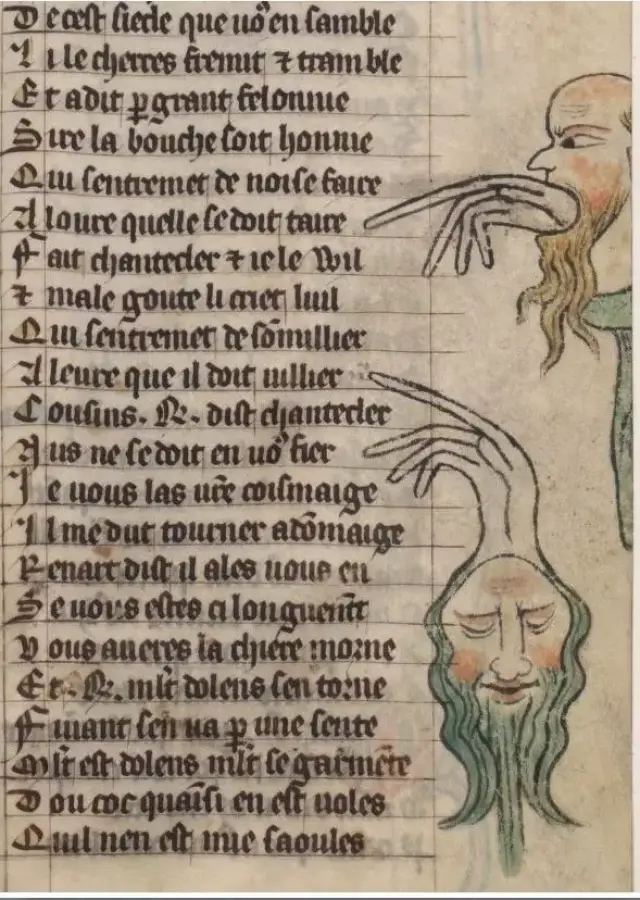 De cest siecle que uo⁹ en samble
Li le cherres fremit ⁊ tramble
Et a dit ꝑ grant felonnie
Sire la bouche soit honnie
Qui sentremet de noise faire
A loure quelle se doit taire
Fait chantecler ⁊ ie le wil
⁊ male goute li criet luil
Qui sentremet de sōmillier
A leure que il doit uillier
Cousins . R . dist chantecler
Nus ne se doit en uo⁹ fier
Je uous las ur̄e coismaige
Il me dut tourner a dōmaige
Renart dist il ales uous en
Se uous estes ci longuem̄t
Vous aueres la chiere morne
Et . R . ml̄t dolens sen torne
Fuiant sen ua ꝑ une sente
Ml̄t est dolens ml̄t se garmēte
Dou coc quainsi en est uoles
Quil nen est mie saoules